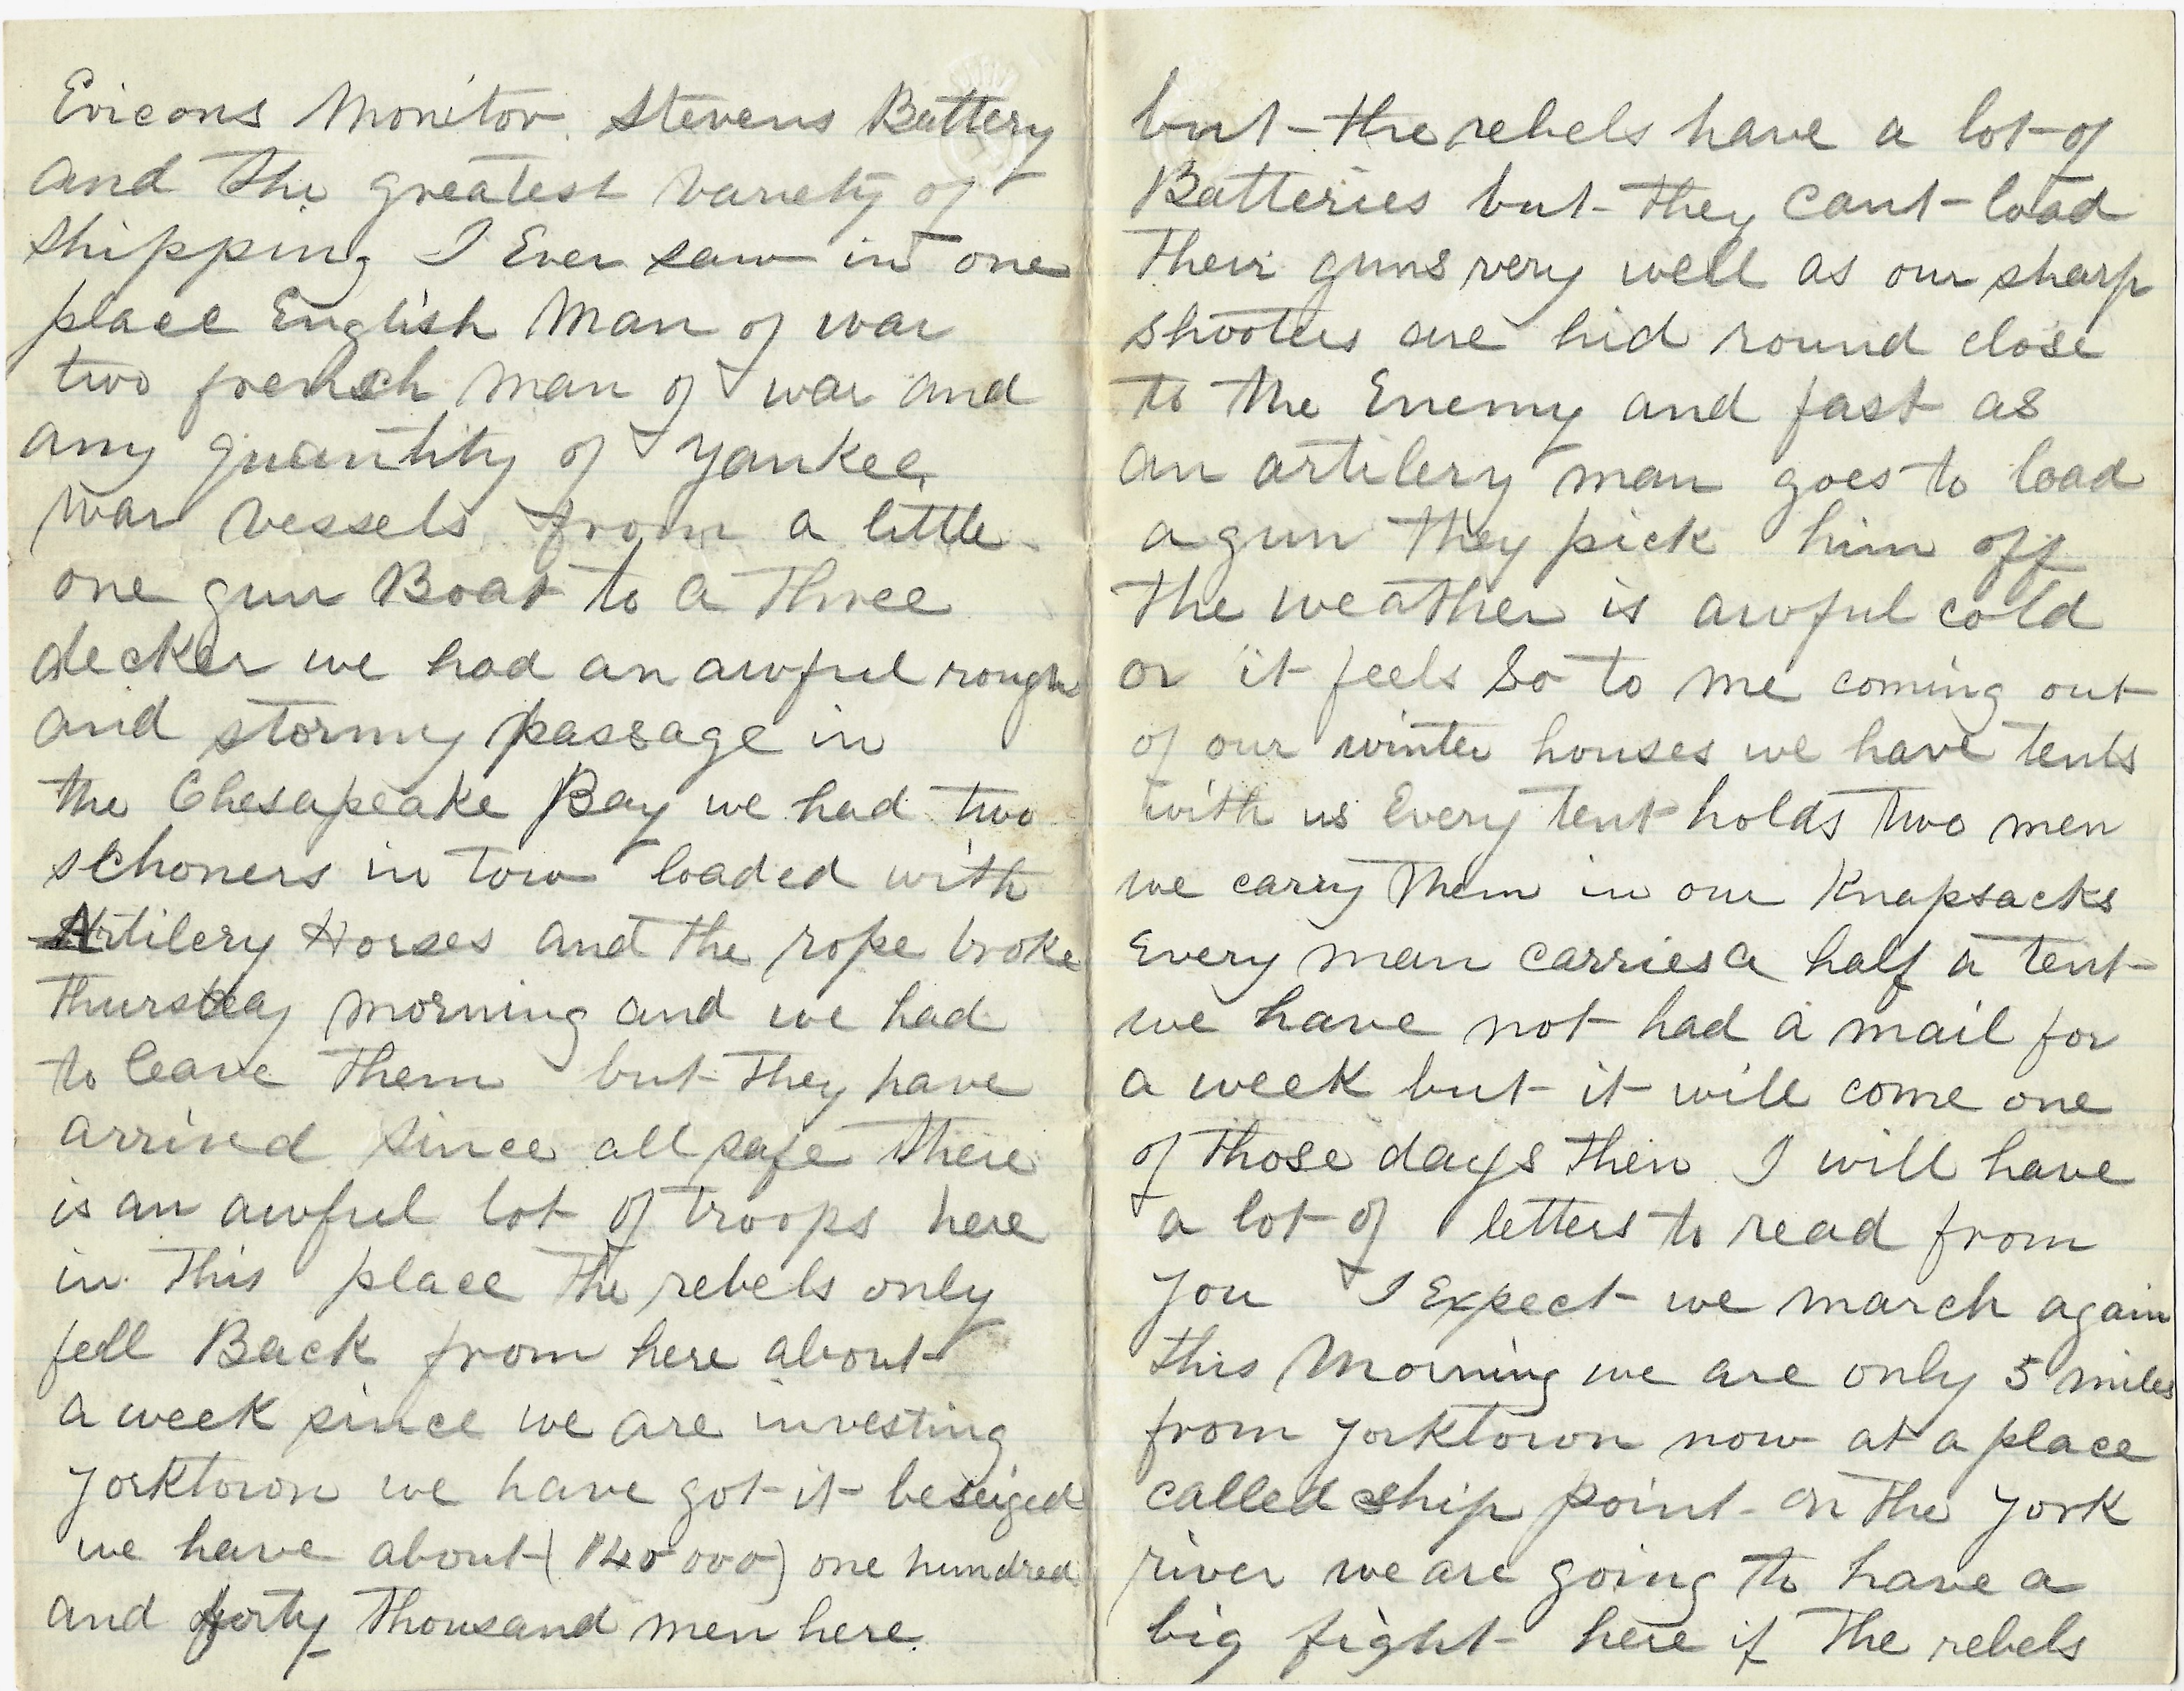 Ericons Monitor. Stevens Battery
and the greatest variety of
shipping I Ever saw in one
place English Man of war
two french man of war and
any quantity of yankee
war vessels from a little
one gun Boat to a three
decker we had an awful rough
and stormy passage in
the Chesapeake Bay we had two
schoners in tow loaded with
Artilery Horses and the rope broke
thursday morning and we had
to leave them but they have
arrived since all safe there
is an awful lot of troops here
in this place the rebels only
fell Back from here about
a week since we are investing
yorktown we have got it beseiged
we have about (140000) one hundred
and forty thousand men here.
but the rebels have a lot of
Batteries but they cant load
their guns very well as our sharp
shooters are hid round close
to the Enemy and fast as
an artilery man goes to load
a gun they pick him off
the weather is awful cold
or it feels so to me coming out
of our winter houses we have tents
with us Every tent holds two men
we carry them in our Knapsacks
Every man carries a half a tent
we have not had a mail for
a week but it will come one
of those days then I will have
a lot of letters to read from
you I Expect we march again
this Morning we are only 5 miles
from yorktown now at a place
called ship point on the york
river we are going to have a
big fight here if the rebels